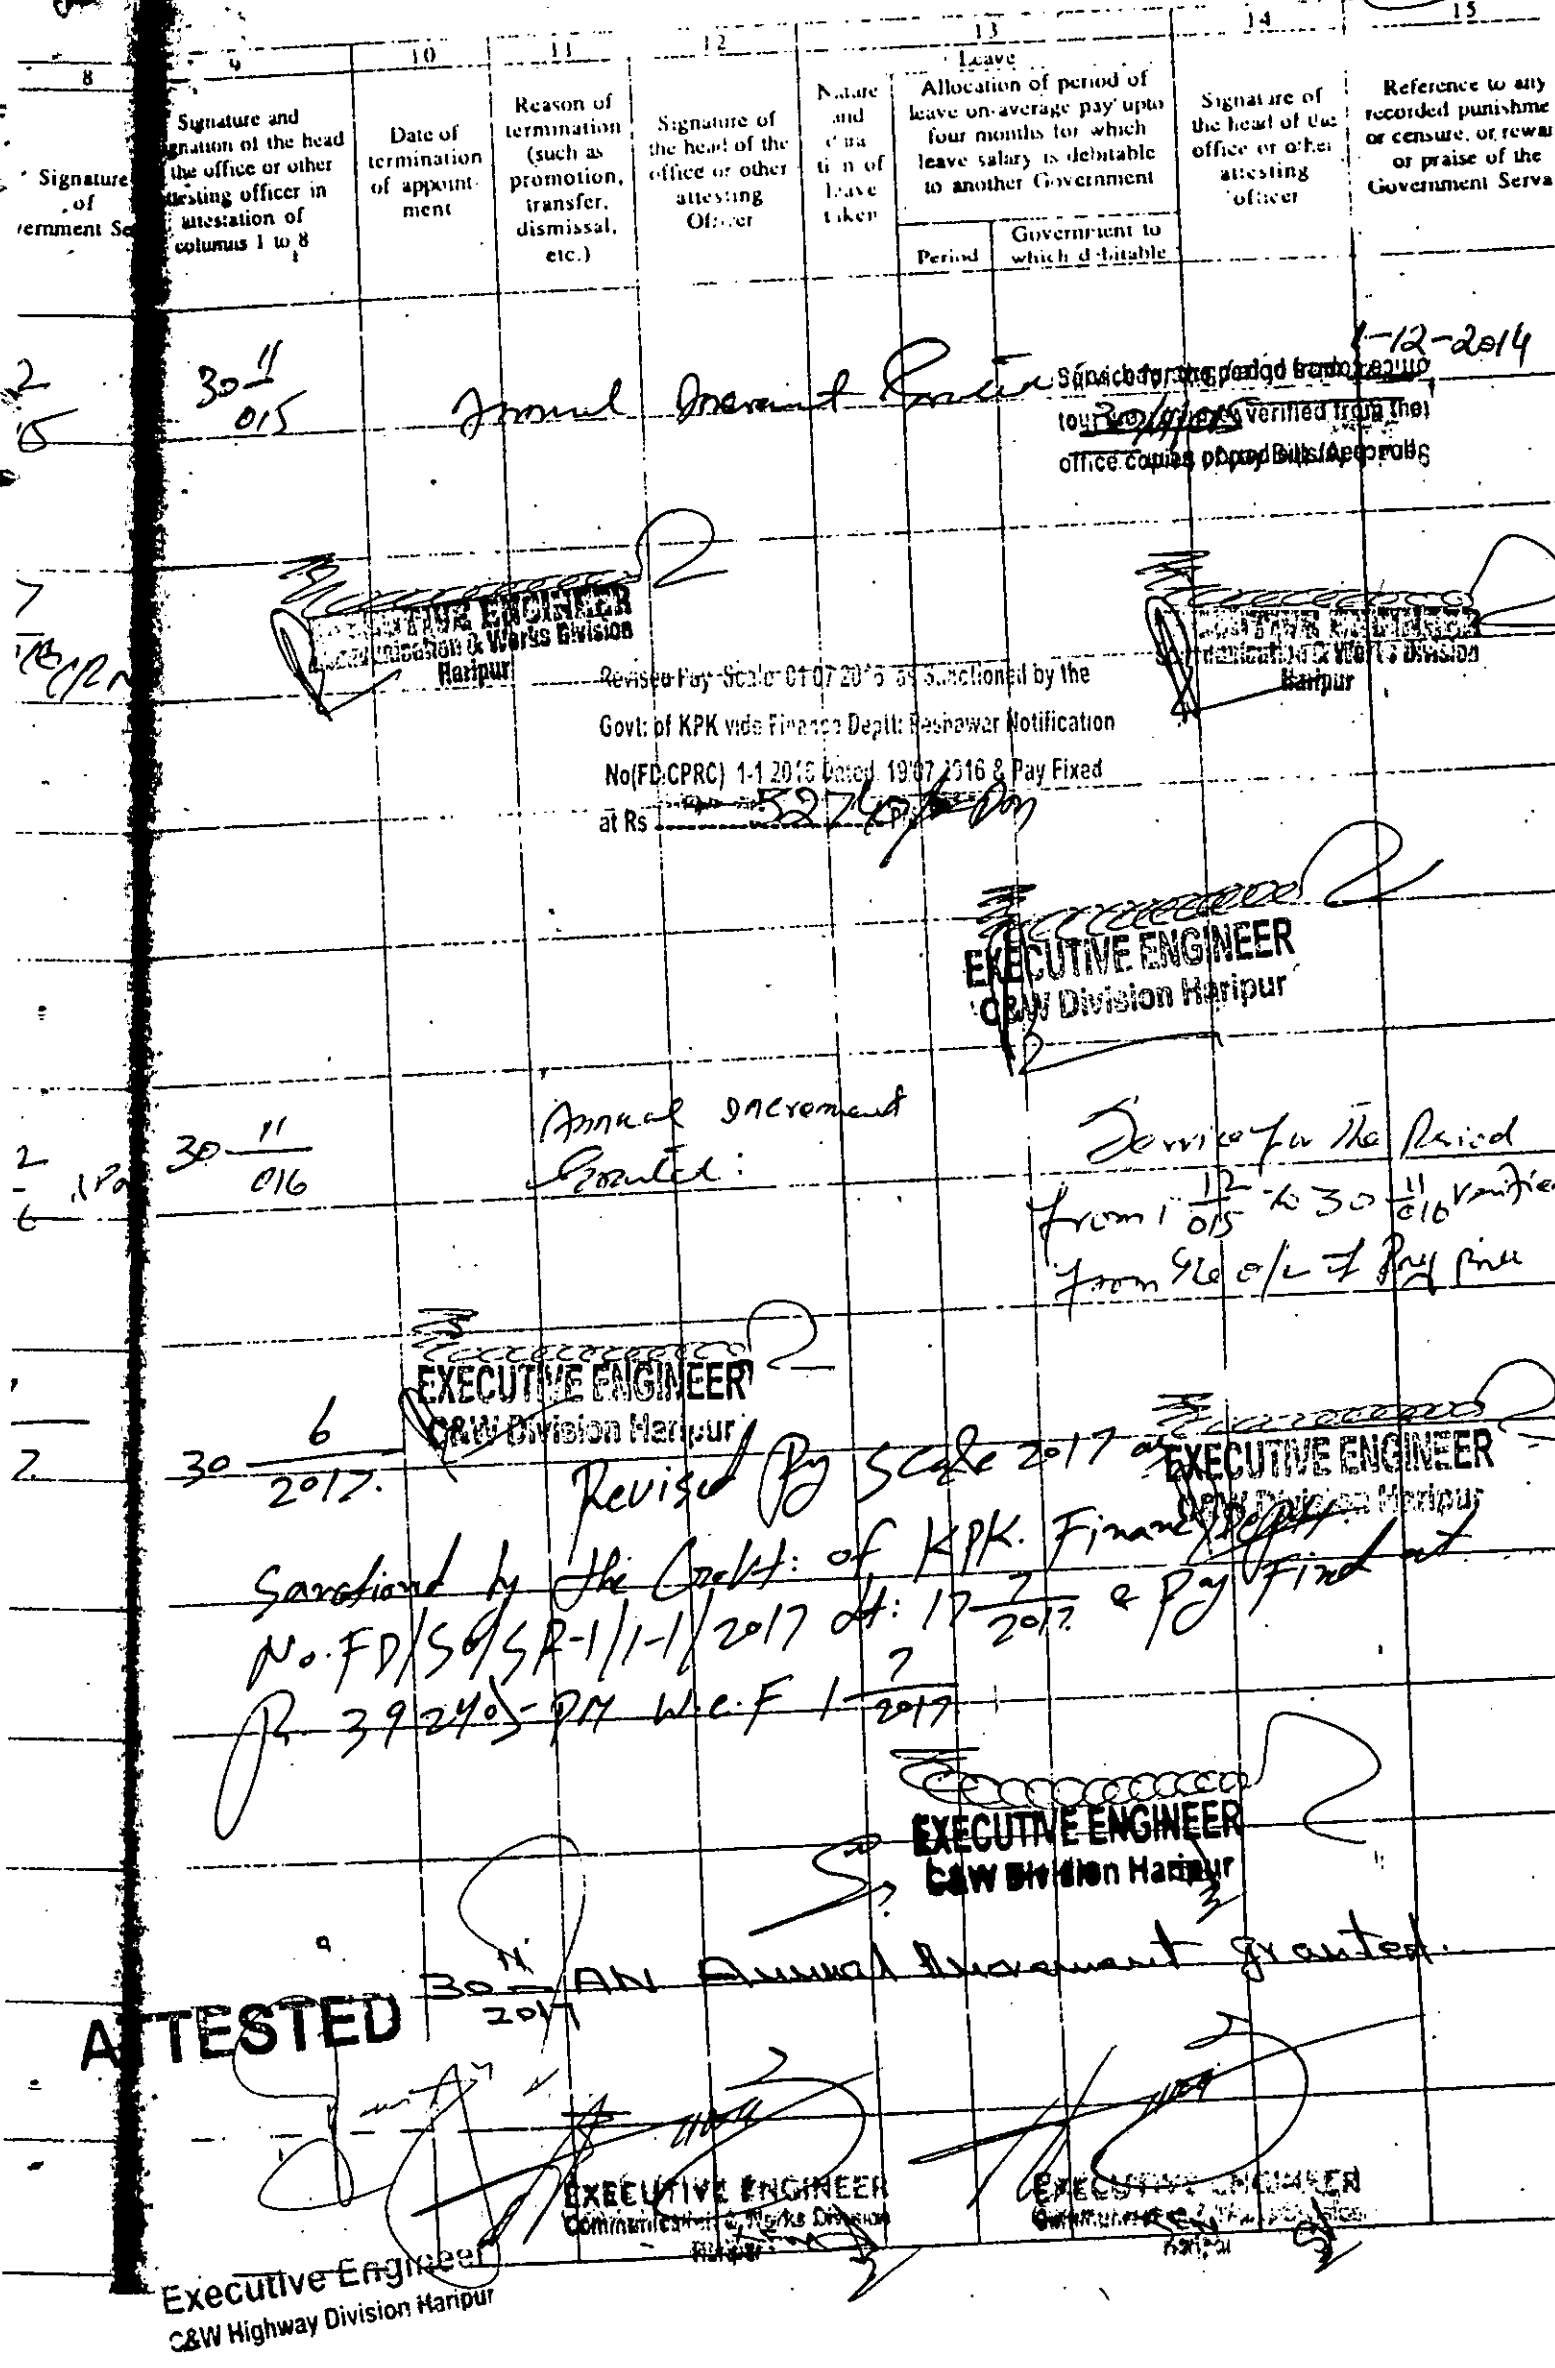 8 9 10 11 12 13 14 15
Leave
Signature
of
vernment Se
Signature and
gnation of the head
the office or other
testing officer in
attestation of
columns 1 to 8
Date of
termination
of appoint-
ment
Reason of
termination
(such as
promotion,
transfer,
dismissal,
etc.)
Signature of
the head of the
office or other
attesting
Officer
Nature
and
dura
tion of
leave
taken
Allocation of period of
leave on average pay upto
four months for which
leave salary is debitable
to another Government
Period
Government to
which debitable
Signature of
the head of the
office or other
attesting
officer
Reference to any
recorded punishme
or censure, or rewar
or praise of the
Government Serva
1-12-2014
30-11
015
Annual Increment Granted
Service for the period from
30/11/015 verified from the
office copies of pay Bills
EXECUTIVE ENGINEER
Communication & Works Division
Haripur
EXECUTIVE ENGINEER
Communication & Works Division
Haripur
Revised Pay Scale 01 07 2016 as Sanctioned by the
Govt: of KPK vide Finance Deptt: Peshawar Notification
No(FD:CPRC) 1-1 2016 Dated 19/07 2016 & Pay Fixed
at Rs 52740/- PM
EXECUTIVE ENGINEER
C&W Division Haripur
30 11
016
Annual Increment
Granted:
Service for the Period
from 1 12/015 to 30 11/016 verifie
from the o/c of Pay Bill
EXECUTIVE ENGINEER
C&W Division Haripur
EXECUTIVE ENGINEER
C&W Division Haripur
30 6
2017.
Revised Pay Scale 2017 as
Sanctioned by the Govt: of KPK. Finance Deptt
No. FD/SO/SR-1/1-1/2017 dt: 17 7/2017 & Pay Fixed at
Rs. 39240/- PM W.e.F 1 7/2017
EXECUTIVE ENGINEER
C&W Division Haripur
30 11/2017 AN Annual Increment granted.
ATTESTED
EXECUTIVE ENGINEER
Communication & Works Division
Haripur
EXECUTIVE ENGINEER
Haripur
Executive Engineer
C&W Highway Division Haripur